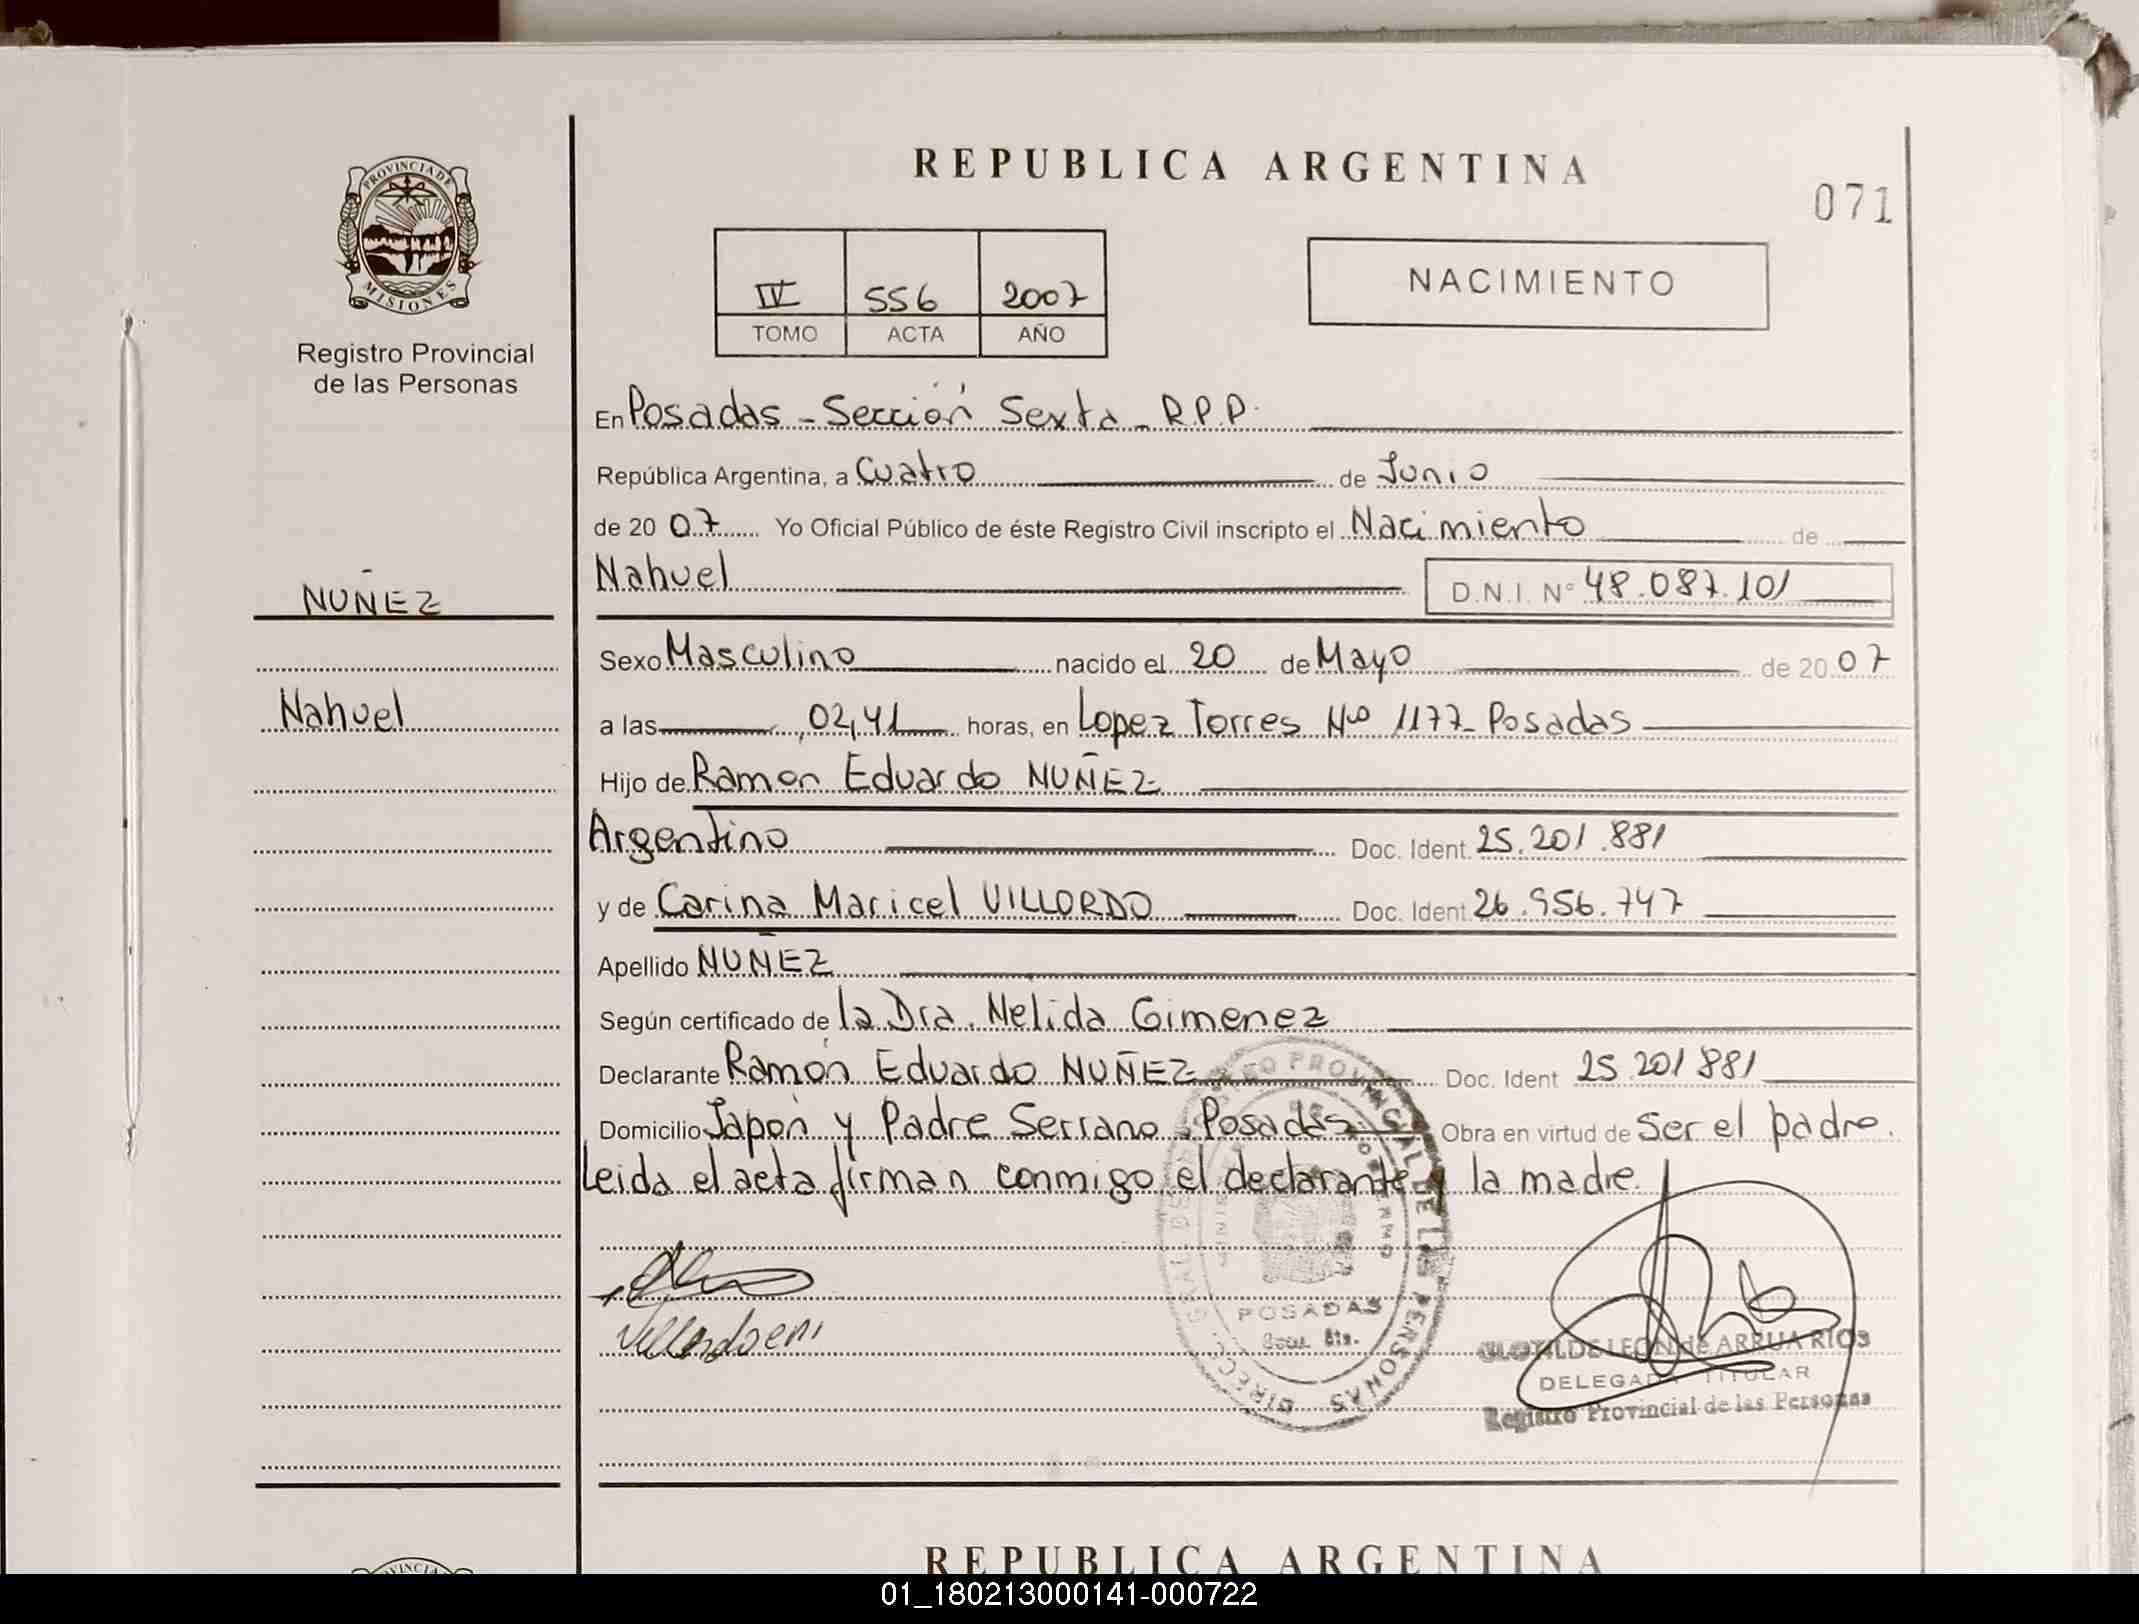 REPUBLICA ARGENTINA
071
PROVINCIA DE
MISIONES
Registro Provincial
de las Personas
IV 556 2007
TOMO ACTA AÑO
NACIMIENTO
En Posadas - Sección Sexta - R.P.P.
República Argentina, a Cuatro de Junio
de 2007 Yo Oficial Público de éste Registro Civil inscripto el Nacimiento de
Nahuel D.N.I. N° 48.087.101
NUÑEZ
Nahuel
Sexo Masculino nacido el 20 de Mayo de 2007
a las 02,41 horas, en Lopez Torres Nº 1177- Posadas
Hijo de Ramon Eduardo NUÑEZ
Argentino Doc. Ident. 25.201.881
y de Carina Maricel VILLORDO Doc. Ident 26.956.747
Apellido NUÑEZ
Según certificado de la Dra. Nelida Gimenez
Declarante Ramón Eduardo NUÑEZ Doc. Ident 25.201.881
Domicilio Japón y Padre Serrano - Posadas Obra en virtud de ser el padre.
Leida el acta firman conmigo el declarante y la madre.
POSADAS
CLOTILDE LEON de ARRUA RIOS
DELEGADA TITULAR
Registro Provincial de las Personas
REPUBLICA ARGENTINA
01_180213000141-000722